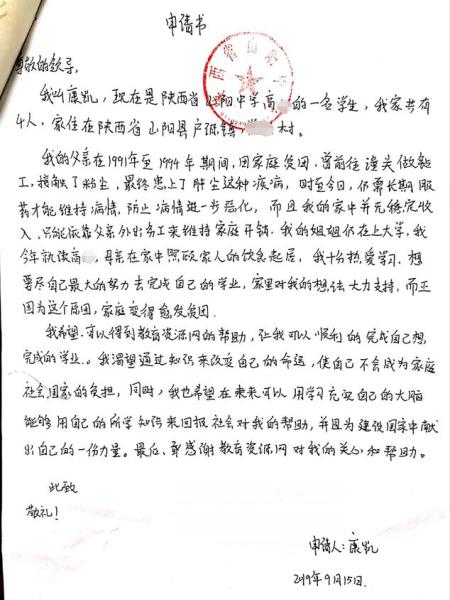 申请书
尊敬的领导:
我叫康凯,现在是陕西省山阳中学高 的一名学生,我家共有
4人,家住在陕西省山阳县户源镇 村。
我的父亲在1991年至1994年期间,因家庭贫困,曾前往潼关做轮
工,接触了粉尘,最终患上了肝尘这种疾病,时至今日,仍需长期服
药才能维持病情,防止病情进一步恶化,而且我的家中并无稳定收
入,只能依靠父亲外出务工来维持家庭开销,我的姐姐仍在上大学,我
今年就读高 ,母亲在家中照顾家人的饮食起居,我十分热爱学习,想
要尽自己最大的努力去完成自己的学业,家里对我的想法大力支持,而正
因为这个原因,家庭变得愈发贫困。
我希望可以得到教育资源网的帮助,让我可以顺利的完成自己想
完成的学业。我渴望通过知识来改变自己的命运,使自己不会成为家庭
社会国家的负担,同时,我也希望在未来可以用学习充实自己的大脑
能够用自己的所学知识来回报社会对我的帮助,并且为建设国家中献
出自己的一份力量。最后,感谢教育资源网对我的关心和帮助。
此致
敬礼!
申请人:康凯
2019年9月15日.